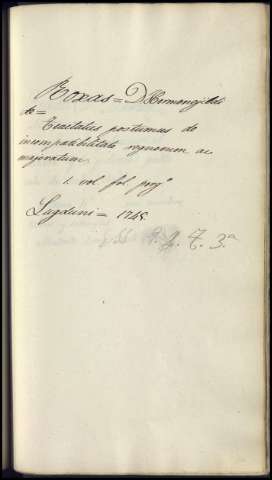 Roxas = D. Hermenegildo
de =
Tractatus postumus de
incompatibilitate regnorum ac
majoratum
1. vol fol perg.º
Lugduni = 1745.
T. 3.ª